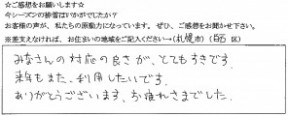 ☆ご感想をお願いします☆
今シーズンの排雪はいかがでしたか?
お客様の声が、私たちの原動力になっています。ぜひ、ご感想をお聞かせ下さい。
※差支えなければ、お住まいの地域をご記入ください→(札幌市)(西 区)
みなさんの対応の良さが、とてもすきです。
来年もまた、利用したいです。
ありがとうございます。お疲れさまでした。